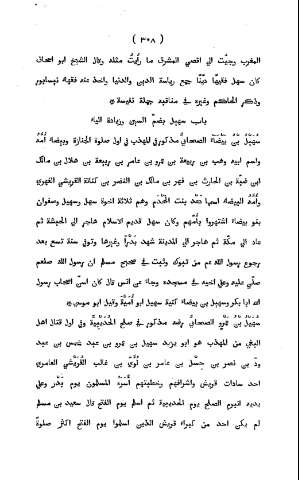 ( ٣٠٨ )
المغرب وجئت الى اقصى المشرق ما رأيت مثله وقال الشيخ ابو اسحاق
كان سهل فقيها دينا جمع رياسة الدين والدنيا واخذ عنه فقهاء نيسابور
وذكر الحاكم وغيره فى مناقبه جملة نفيسة ۞
باب سهيل بضم السين وزيادة الياء
سُهَيْلُ بْنُ بَيْضَآءَ الصحابىُّ مذكور فى المهذب فى اول صلوة الجنازة وبيضاء اُمُّهُ
واسم ابيه وهب بن ربيعة بن عمرو بن عامر بن ربيعة بن هلال بن مالك
ابن ضبّة بن الحارث بن فهر بن مالك بن النضر بن كنانة القرشى الفهرى
واُمُّهُ البيضاء اسمها دَعْد بنت الجَحْدَم وهم ثلاثة اخوة سهل وسهيل وصفوان
بنو بيضاء اشتهروا بأمّهم وكان سهيل قديم الاسلام هاجر الى الحبشة ثم
عاد الى مكّة ثم هاجر الى المدينة شهد بَدْرًا وغيرها وتوفى سنة تسع بعد
رجوع رسول الله صعم من تبوك وثبت فى صحيح مسلم ان رسول الله صلعم
صلّى عليه وعلى اخيه فى مسجده وجاء عن انس قال كان اسنّ اصحاب رسول
الله ابا بكر وسهيل بن بيضاء كنية سهيل ابو اُمَيَّةَ وقيل ابو موسى ۞
سُهَيْلُ بْنُ عَمْرو الصحابىُّ رضه مذكور فى صلح الحديبيّة وفى اول قتال اهل
البغى من المهذب هو ابو يزيد سهيل بن عمرو بن عبد شمس بن عبد
ودّ بن نصر بن حِسْل بن عامر بن لُوَىّ بن غالب القُرَشىُّ العامرى
احد سادات قريش واشرافهم وخطيبهم أَسَرَهُ المسلمون يوم بَدْر وعلى
يديه انبرم الصلح يوم الحديبية ثم اسلم يوم الفتح قال سعيد بن مسلم
لم يكن احد من كبراء قريش الذين اسلموا يوم الفتح اكثر صلوةً